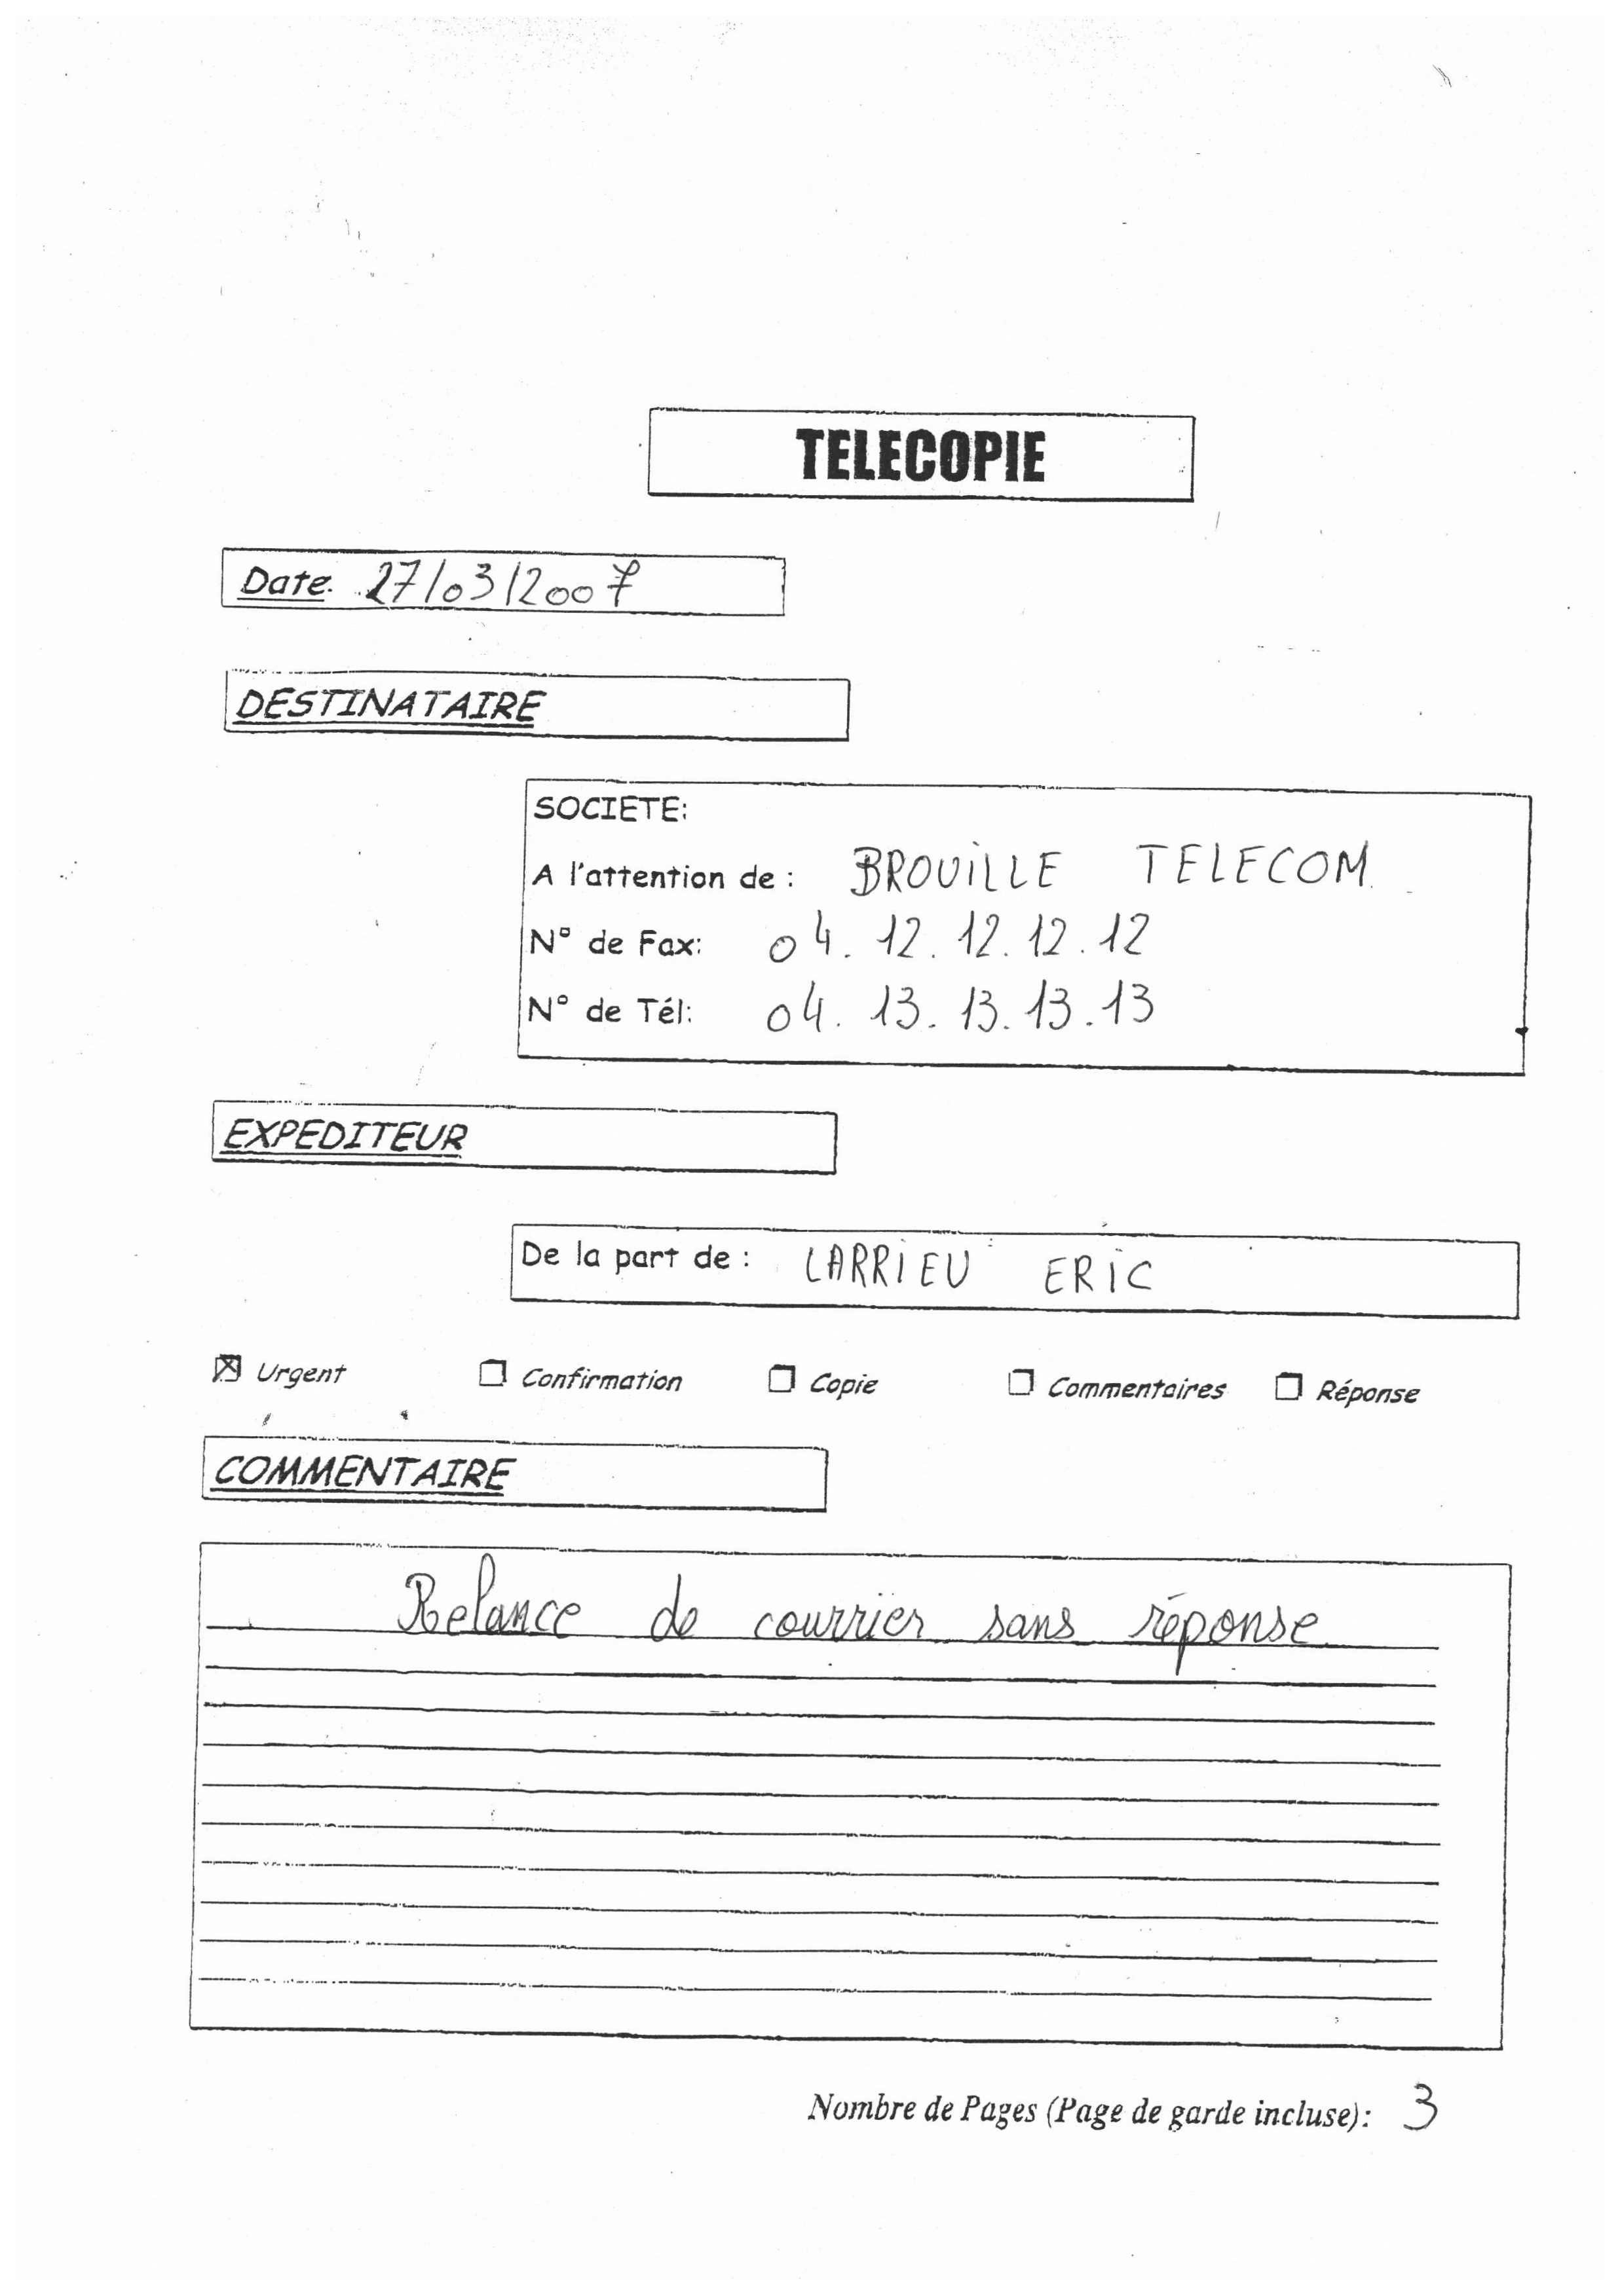 TELECOPIE
Date. 27/03/2007
DESTINATAIRE
SOCIETE:
A l'attention de : BROUILLE TELECOM
N° de Fax: 04. 12. 12. 12. 12
N° de Tél: 04. 13. 13. 13. 13
EXPEDITEUR
De la part de : LARRIEU ERIC
☒ Urgent ☐ Confirmation ☐ Copie ☐ Commentaires ☐ Réponse
COMMENTAIRE
Relance de courrier sans réponse
Nombre de Pages (Page de garde incluse): 3